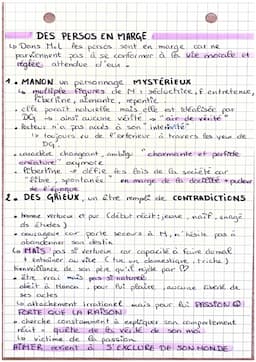 DES PERSOS EN MARGE
↳ Dans ML les persos sont en marge car ne
parviennent pas à se conformer à la vie morale et
réglée attendue d'eux.
1. MANON un personnage MYSTÉRIEUX
↳ multiple figures de M : séductrice, f. entretenue,
libertine, aimante, repentie
↳ elle paraît naturelle mais elle est idéalisée par
DG → ainsi aucune vérité → "air de vérité"
↳ lecteur n'a pas accès à son "intériorité"
↳ toujours vu de l'extérieur à travers les yeux de
DG.
↳ caractère changeant, ambigu "charmante et perfide
créature" oxymore
↳ libertine → défie les lois de la société car
"libre, spontanée" en marge de la + pudeur
de l'époque
2. DES GRIEUX, un être rempli de CONTRADICTIONS
↳ homme vertueux et pur (début récit : jeune, naïf, engagé
ds études)
↳ courageux car porte secours à M, n'hésite pas à
abandonner son destin
↳ MAIS pas si vertueux car capacité à faire du mal
↳ enfoncer au vice (tue un domestique, triche)
bienveillance de son père qu'il rejette par ♡
↳ être vrai mais pas si naturel
obéit à Manon, pour lui plaire, aucune liberté de
ses actes
↳ attachement irrationnel mais pour lui PASSION
PLUS FORTE QUE LA RAISON
↳ cherche constamment à expliquer son comportement
récit = quête de la vérité de son moi
↳ victime de la passion
AIMER revient à S'EXCLURE DE SON MONDE